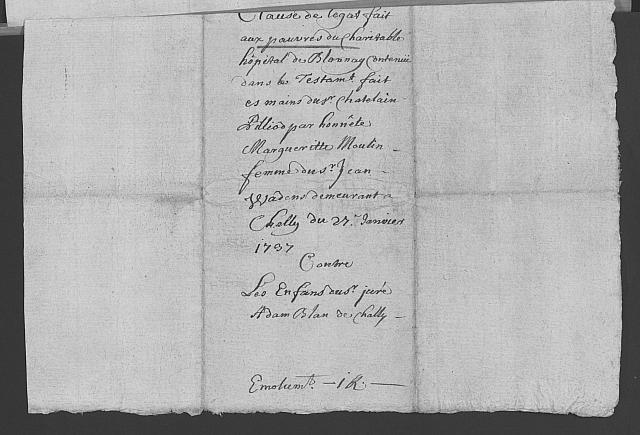 Clause de legat fait
aux pauvres du Charitable
hôpital de Blonnay Contenuë
dans le Testamt. fait
es mains du sr. Chatelain
Pilliod par honnête
Margueritte Moulin
femme du sr. Jean
Wadens demeurant a
Chally du 27e. Janvier
1737
Contre
Les Enfans du sr. juré
Adam Blan de Chally
Emolumts. - 1 R. -